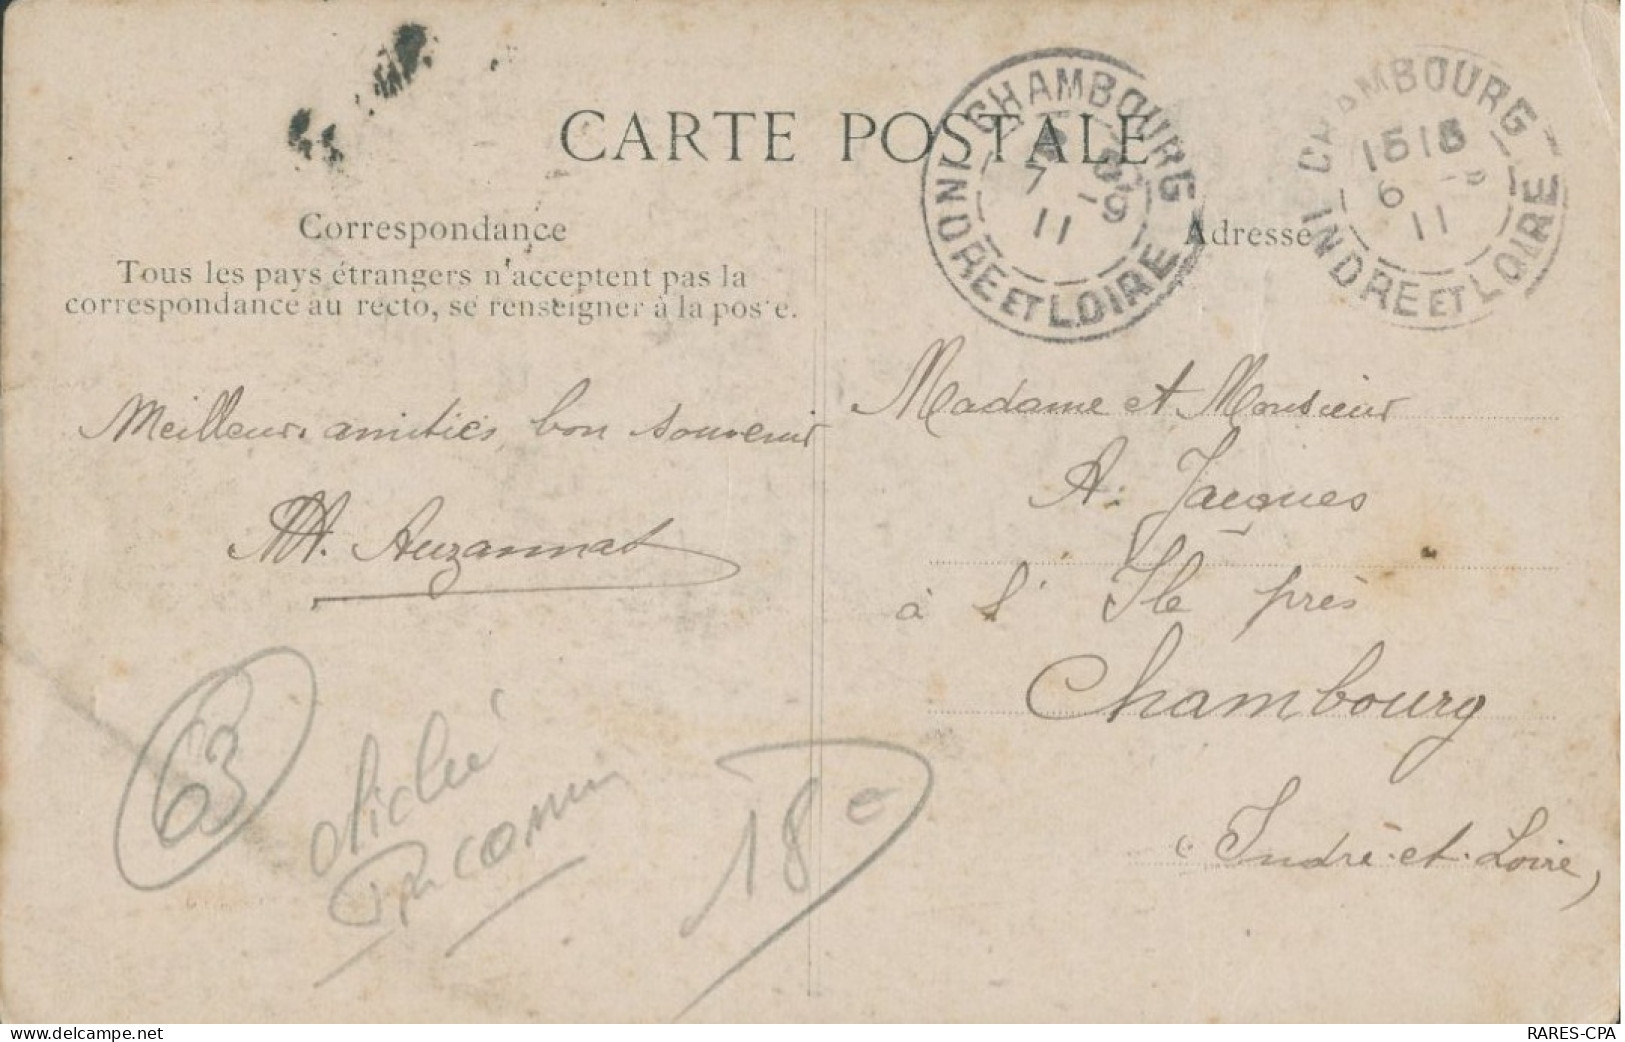 CARTE POSTALE
CHAMBOURG
7 -9
11
INDRE ET LOIRE
CHAMBOURG
1515
6 -9
11
INDRE ET LOIRE
Correspondance
Tous les pays étrangers n'acceptent pas la
correspondance au recto, se renseigner à la poste.
Adresse
Meilleurs amitiés, bon souvenir
Auzannat
Madame et Monsieur
A. Jacques
à l' Ile près
Chambourg
Indre-et-Loire,
63
cliché
18 e
RARES-CPA